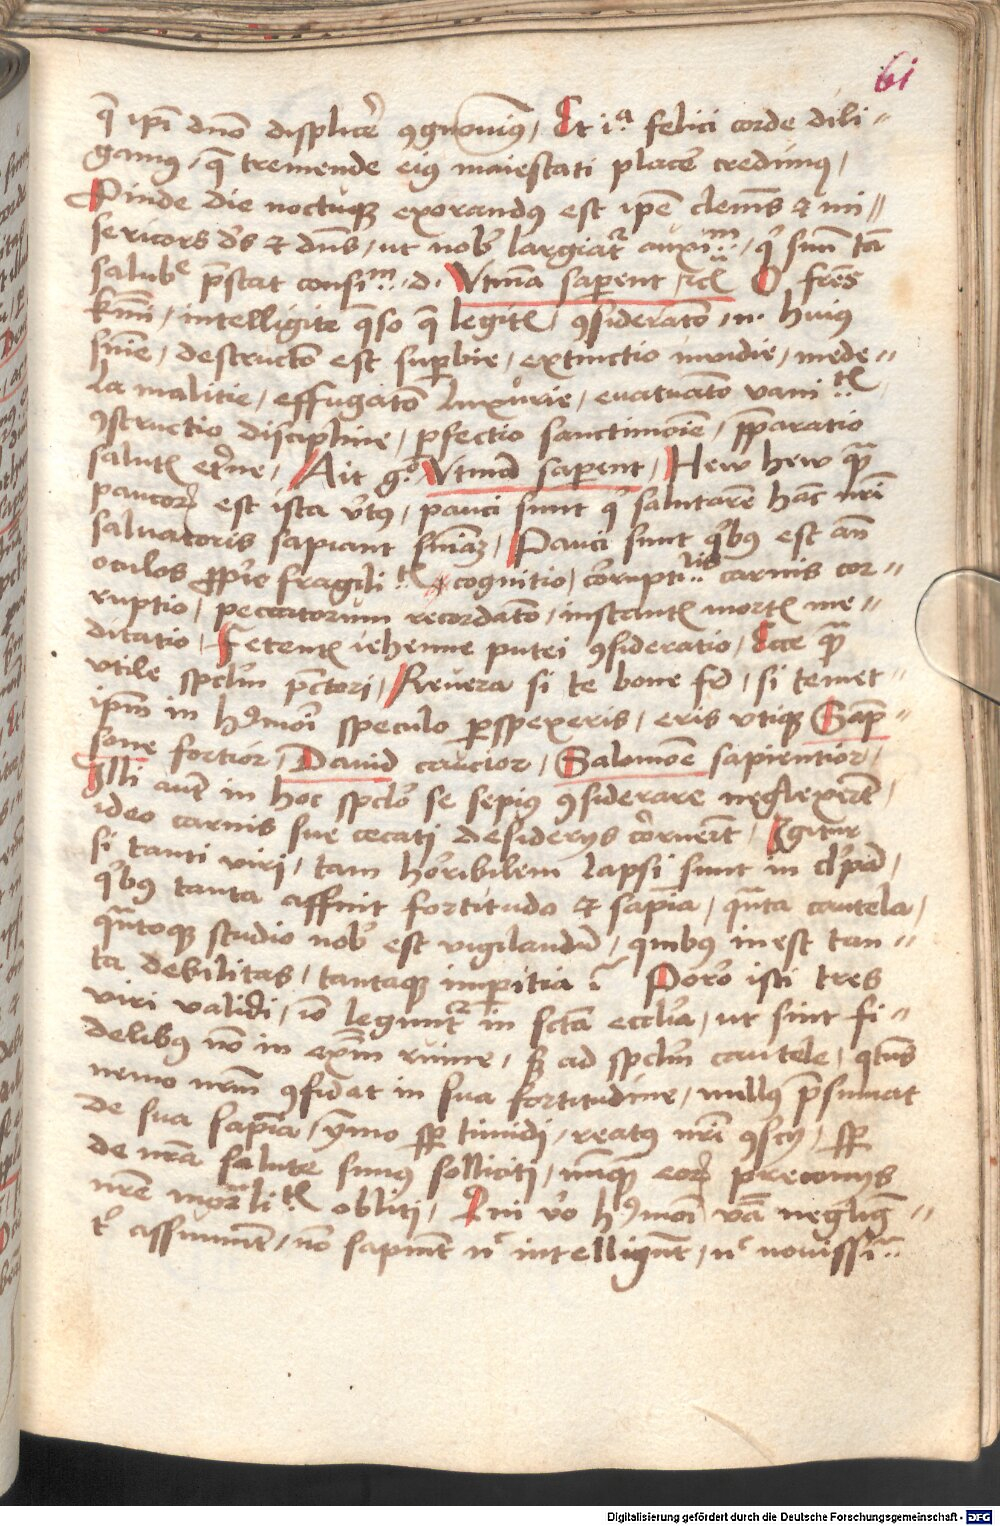 61
q̄ ipī dnō displicē ꝯgnouimꝰ / Et iᵃ felici corde dili-
gamꝰ / q̄ tremende eiꝰ maiestati placē credimꝰ /
Pinde die noctuqꝫ exorandꝰ est ipē clemēs & mi-
sericors ds̄ & dns̄ / ut nob largiatʳ auxiᵐ / qͥ sum tā
salubᵉ p̄stat consiᵐ d. Vtinā saperent ⁊c̄ O frēs
kmī / intelligite qso q̄ legitꝭ / ꝯsideratō .n. huiꝰ
snīe / destructō est supbie / extinctio inuidie / mede-
la malitie / effugatō luxurie / euacuatō vaniᵗꝭ
ꝯstructio discipline / pfectio sanctimonie / pparatio
salutꝭ etne / Ait gͦ Vtinā saperent / Hew hew qͣ
paucoꝝ est ista vtꝰ / pauci sunt qͥ salutarē hāc nrī
saluatoris sapiant snīaꝫ / Pauci sunt qͥbꝰ est an̄
oculos pprie fragiliᵗꝭ cognitio / corruptiˡⁱˢ carnis cor-
ruptio / peccatorum recordatō / instantꝭ mortꝭ me-
ditatio / Fetentꝭ iehenne putei ꝯsideratio / Ecce qͣ
vtile spclm̄ pctori / Reuera si te bone fr̄ / si temet
ipm̄ in hꝰmōi speculo pspexeris / eris vtiqꝫ Samp-
sone fortior / Dauid caucior / Salomōe sapientior /
Illi aut̄ in hoc spclo se sepius ꝯsiderare neglexert̄ /
ideo carnis sue cecati desiderijs corruert̄ / Igitur
si tanti viri / tam horribilem lapsi sunt in
qͥbꝰ tanta affuit fortitudo & sapia / qͣnta cautela /
qͣntoqꝫ studio nob est vigilandū / quibꝰ inest tan-
ta debilitas / tantaqꝫ impitia ? Porro isti tres
viri validi / iō leguntʳ in sctā ecclia / ut sint fi-
delibꝰ nō in exm̄ ruine / sꝫ ad spclm̄ cautele / qtnꝰ
nemo nrm̄ ꝯfidat in sua fortitudine / nullꝰ psumat
de sua sapia / ymo sp timidi / reatꝰ nrī ꝯscij / sp
de nrā salute simꝰ solliciti / nūqꝫ eoꝝ
nrē morᵗliᵗꝭ obliti / Qui vo hꝰmōi vā negligē-
tͬ assumūt / nō sapiūt nᶜ intelligūt / nᶜ nouissi-
Digitalisierung gefördert durch die Deutsche Forschungsgemeinschaft - DFG